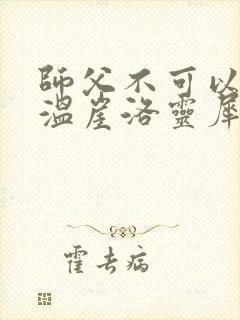 師父不可以
溫崖洛靈犀
霍去病